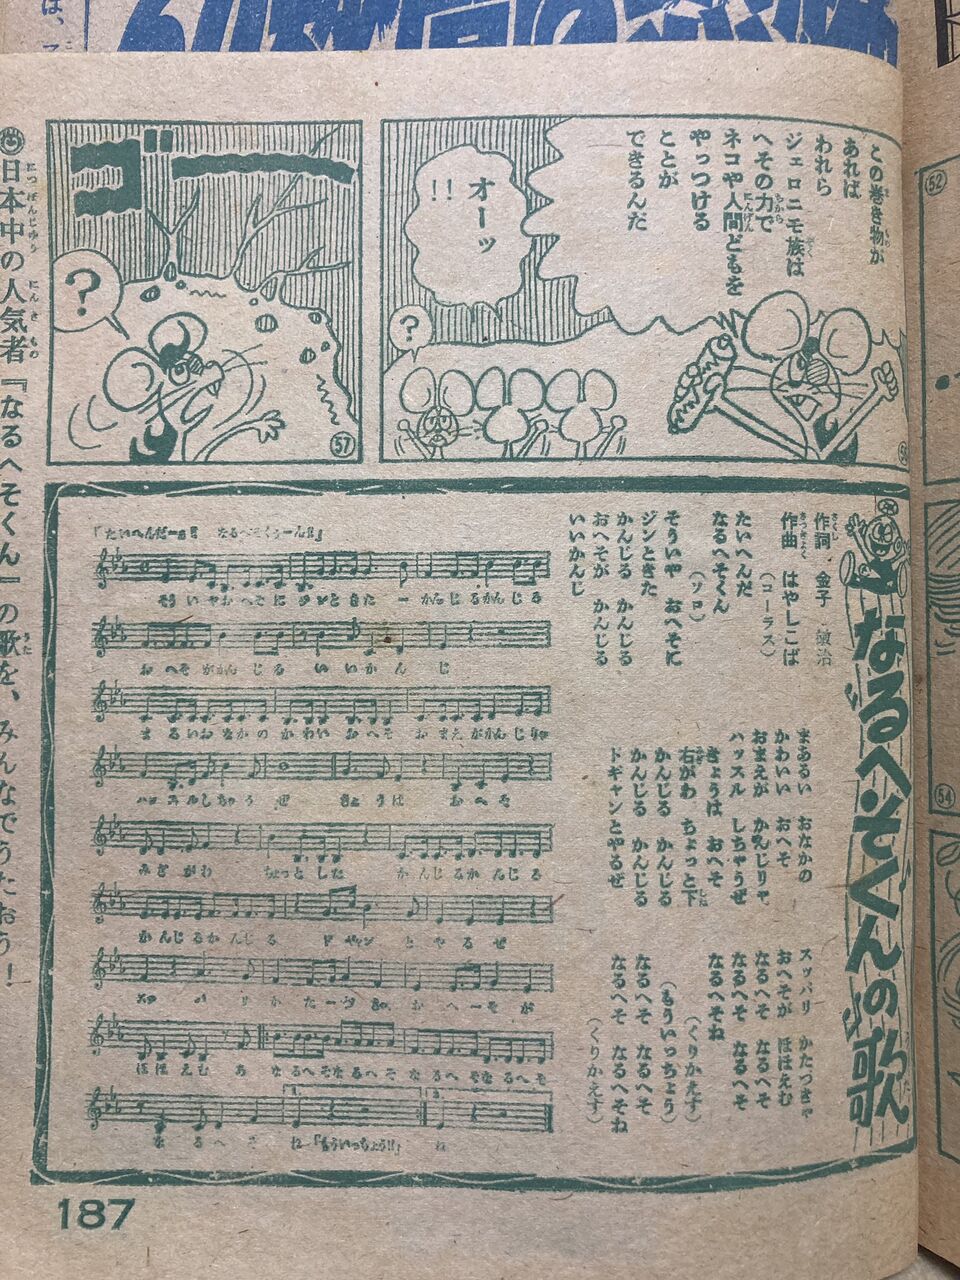 この巻き物が
あれば
われら
ジェロニモ族は
へその力で
ネコや人間どもを
やっつける
ことが
できるんだ
オーッ
!!
?
ゴーーッ
?
57
52
54
なるへそくんの歌
作詞 金子
作曲 はやしこば
(コーラス)
たいへんだ
なるへそくん
(ソロ)
そういや おへそに
ジンときた
かんじる かんじる
おへそが かんじる
いいかんじ
まあるい おなかの
かわいい おへそ
おまえが かんじりゃ
ハッスル しちゃうぜ
きょうは おへそ
右がわ ちょっと下
かんじる かんじる
かんじる かんじる
ドギャンとやるぜ
スッパリ かたつきゃ
おへそが ほほえむ
なるへそ なるへそ
なるへそ なるへそ
なるへそね
(くりかえす)
(もういっちょう)
なるへそ なるへそ
なるへそ なるへそね
(くりかえす)
「たいへんだーっ!! なるへそくぅーん!!」
そういやおへそにジンときたーかんじるかんじる
おへそがかんじるいいかんじ
まるいおなかのかわいおへそ おまえがかんじりゃ
ハッスルしちゃうぜ きょうは おへそ
みぎがわ ちょっとした かんじるかんじる
かんじるかんじる ドギャンとやるぜ
ほほえむ あ なるへそなるへそ なるへそなるへそ
なるへそ ね「もういっちょう!!」 ね
日本中の人気者『なるへそくん』の歌を、みんなでうたおう!
187